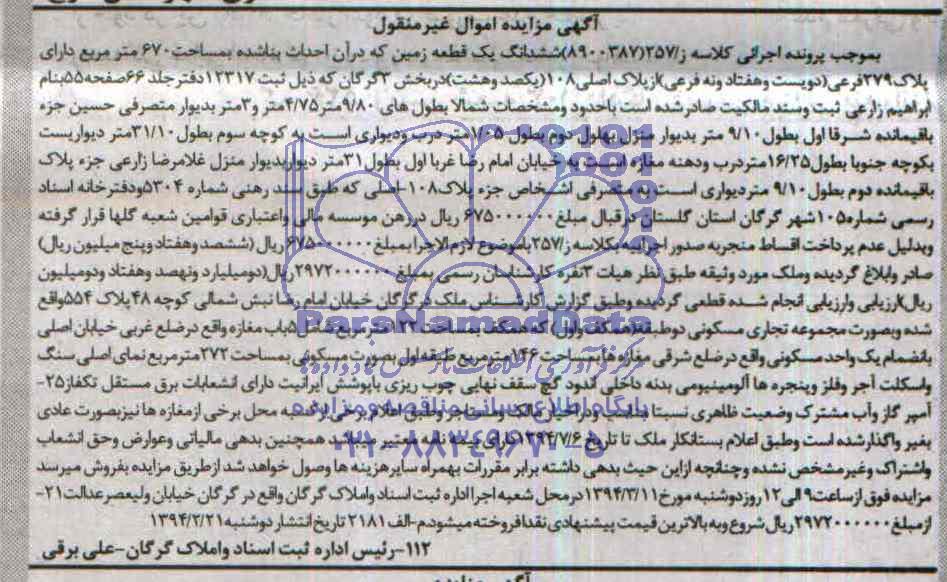 آگهی مزایده اموال غیرمنقول
بموجب پرونده اجرائی کلاسه ز/۲۵۷(۸۹۰۰۳۸۷)ششدانگ یک قطعه زمین که درآن احداث بناشده بمساحت۶۷۰ متر مربع دارای
پلاک۲۷۹فرعی(دویست وهفتاد ونه فرعی)ازپلاک اصلی۱۰۸(یکصد وهشت)دربخش ۳گرگان که ذیل ثبت ۱۲۳۱۷دفترجلد ۶۶صفحه۵۵بنام
ابراهیم زارعی ثبت وسند مالکیت صادر شده است باحدود ومشخصات شمالا بطول های ۹/۸۰متر ۴/۷۵متر و۳متر بدیوار متصرفی حسین جزء
باقیمانده شرقا اول بطول۹/۱۰ متر بدیوار منزل بهلول دوم بطول ۱/۰۵متر درب ودیواری است به کوچه سوم بطول ۳۱/۱۰متر دیواریست
بکوچه جنوبا بطول۱۶/۲۵متردرب ودهنه مغازه است به خیابان امام رضا غربا اول بطول ۳۱متر دیواربدیوار منزل غلامرضا زارعی جزء پلاک
باقیمانده دوم بطول ۹/۱۰ متردیواری است به متصرفی اشخاص جزء پلاک۱۰۸-اصلی که طبق سند رهنی شماره ۵۳۰۴ودفترخانه اسناد
رسمی شماره۱۰۵شهر گرگان استان گلستان درقبال مبلغ ۶۷۵۰۰۰۰۰۰ ریال دررهن موسسه مالی واعتباری قوامین شعبه گلها قرار گرفته
وبدلیل عدم پرداخت اقساط منجربه صدور اجراییه بکلاسه ز/۲۵۷باموضوع لازم الاجرا بمبلغ ۶۷۵۰۰۰۰۰۰ریال (ششصد وهفتادوپنج میلیون ریال)
صادر وابلاغ گردیده وملک مورد وثیقه طبق نظر هیات ۳نفره کارشناسان رسمی بمبلغ ۲۹۷۲۰۰۰۰۰۰ریال(دومیلیارد ونهصد وهفتاد ودومیلیون
ریال)ارزیابی وارزیابی انجام شده قطعی گردیده وطبق گزارش کارشناسی ملک درگرگان خیابان امام رضا نبش شمالی کوچه ۴۸پلاک ۵۵۴واقع
شده وبصورت مجموعه تجاری مسکونی دوطبقه(همکف واول) که همکف بمساحت مترمربع شامل ۵باب مغازه واقع در ضلع غربی خیابان اصلی
بانضمام یک واحد مسکونی واقع درضلع شرقی مغازه ها بمساحت ۱۴۶مترمربع طبقه اول بصورت مسکونی بمساحت ۲۷۲مترمربع نمای اصلی سنگ
واسکلت آجر وفلز وپنجره ها آلومینیومی بدنه داخلی اندود گچ سقف نهایی چوب ریزی باپوشش ایرانیت دارای انشعابات برق مستقل تکفاز۲۵-
آمپر گاز وآب مشترک وضعیت ظاهری نسبتا در اختیار مالک ومستاجر وطبق اعلام برخی از محل برخی ازمغازه ها نیزبصورت عادی
بغیر واگذارشده است وطبق اعلام بستانکار ملک تا تاریخ ۱۳۹۴/۷/۶دارای بیمه نامه معتبر میباشد همچنین بدهی مالیاتی وعوارض وحق انشعاب
واشتراک وغیرمشخص نشده وچنانچه ازاین حیث بدهی داشته برابر مقررات بهمراه سایرهزینه ها وصول خواهد شد ازطریق مزایده بفروش میرسد
مزایده فوق ازساعت۹ الی۱۲ روزدوشنبه مورخ۱۳۹۴/۳/۱۱درمحل شعبه اجرا اداره ثبت اسناد واملاک گرگان واقع در گرگان خیابان ولیعصرعدالت۲۱-
ازمبلغ ۲۹۷۲۰۰۰۰۰۰ریال شروع وبه بالاترین قیمت پیشنهادی نقدا فروخته میشود.م-الف ۲۱۸۱ تاریخ انتشار دوشنبه۱۳۹۴/۲/۲۱
۱۱۲-رئیس اداره ثبت اسناد واملاک گرگان-علی برقی
ParsNamadData
پایگاه اطلاع رسانی مناقصه و مزایده
۰۲۱-۸۸۳۴۹۶۷۰-۵